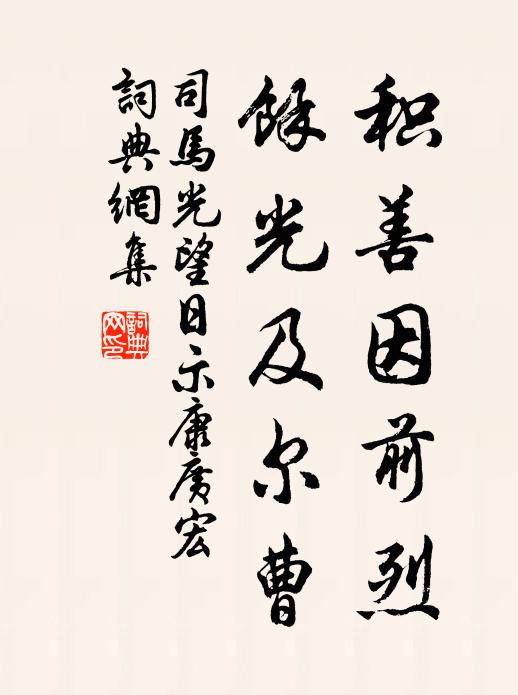 积善因前烈
馀光及尔曹
司馬光望日示康广宏
詞典網集
詞典
网印